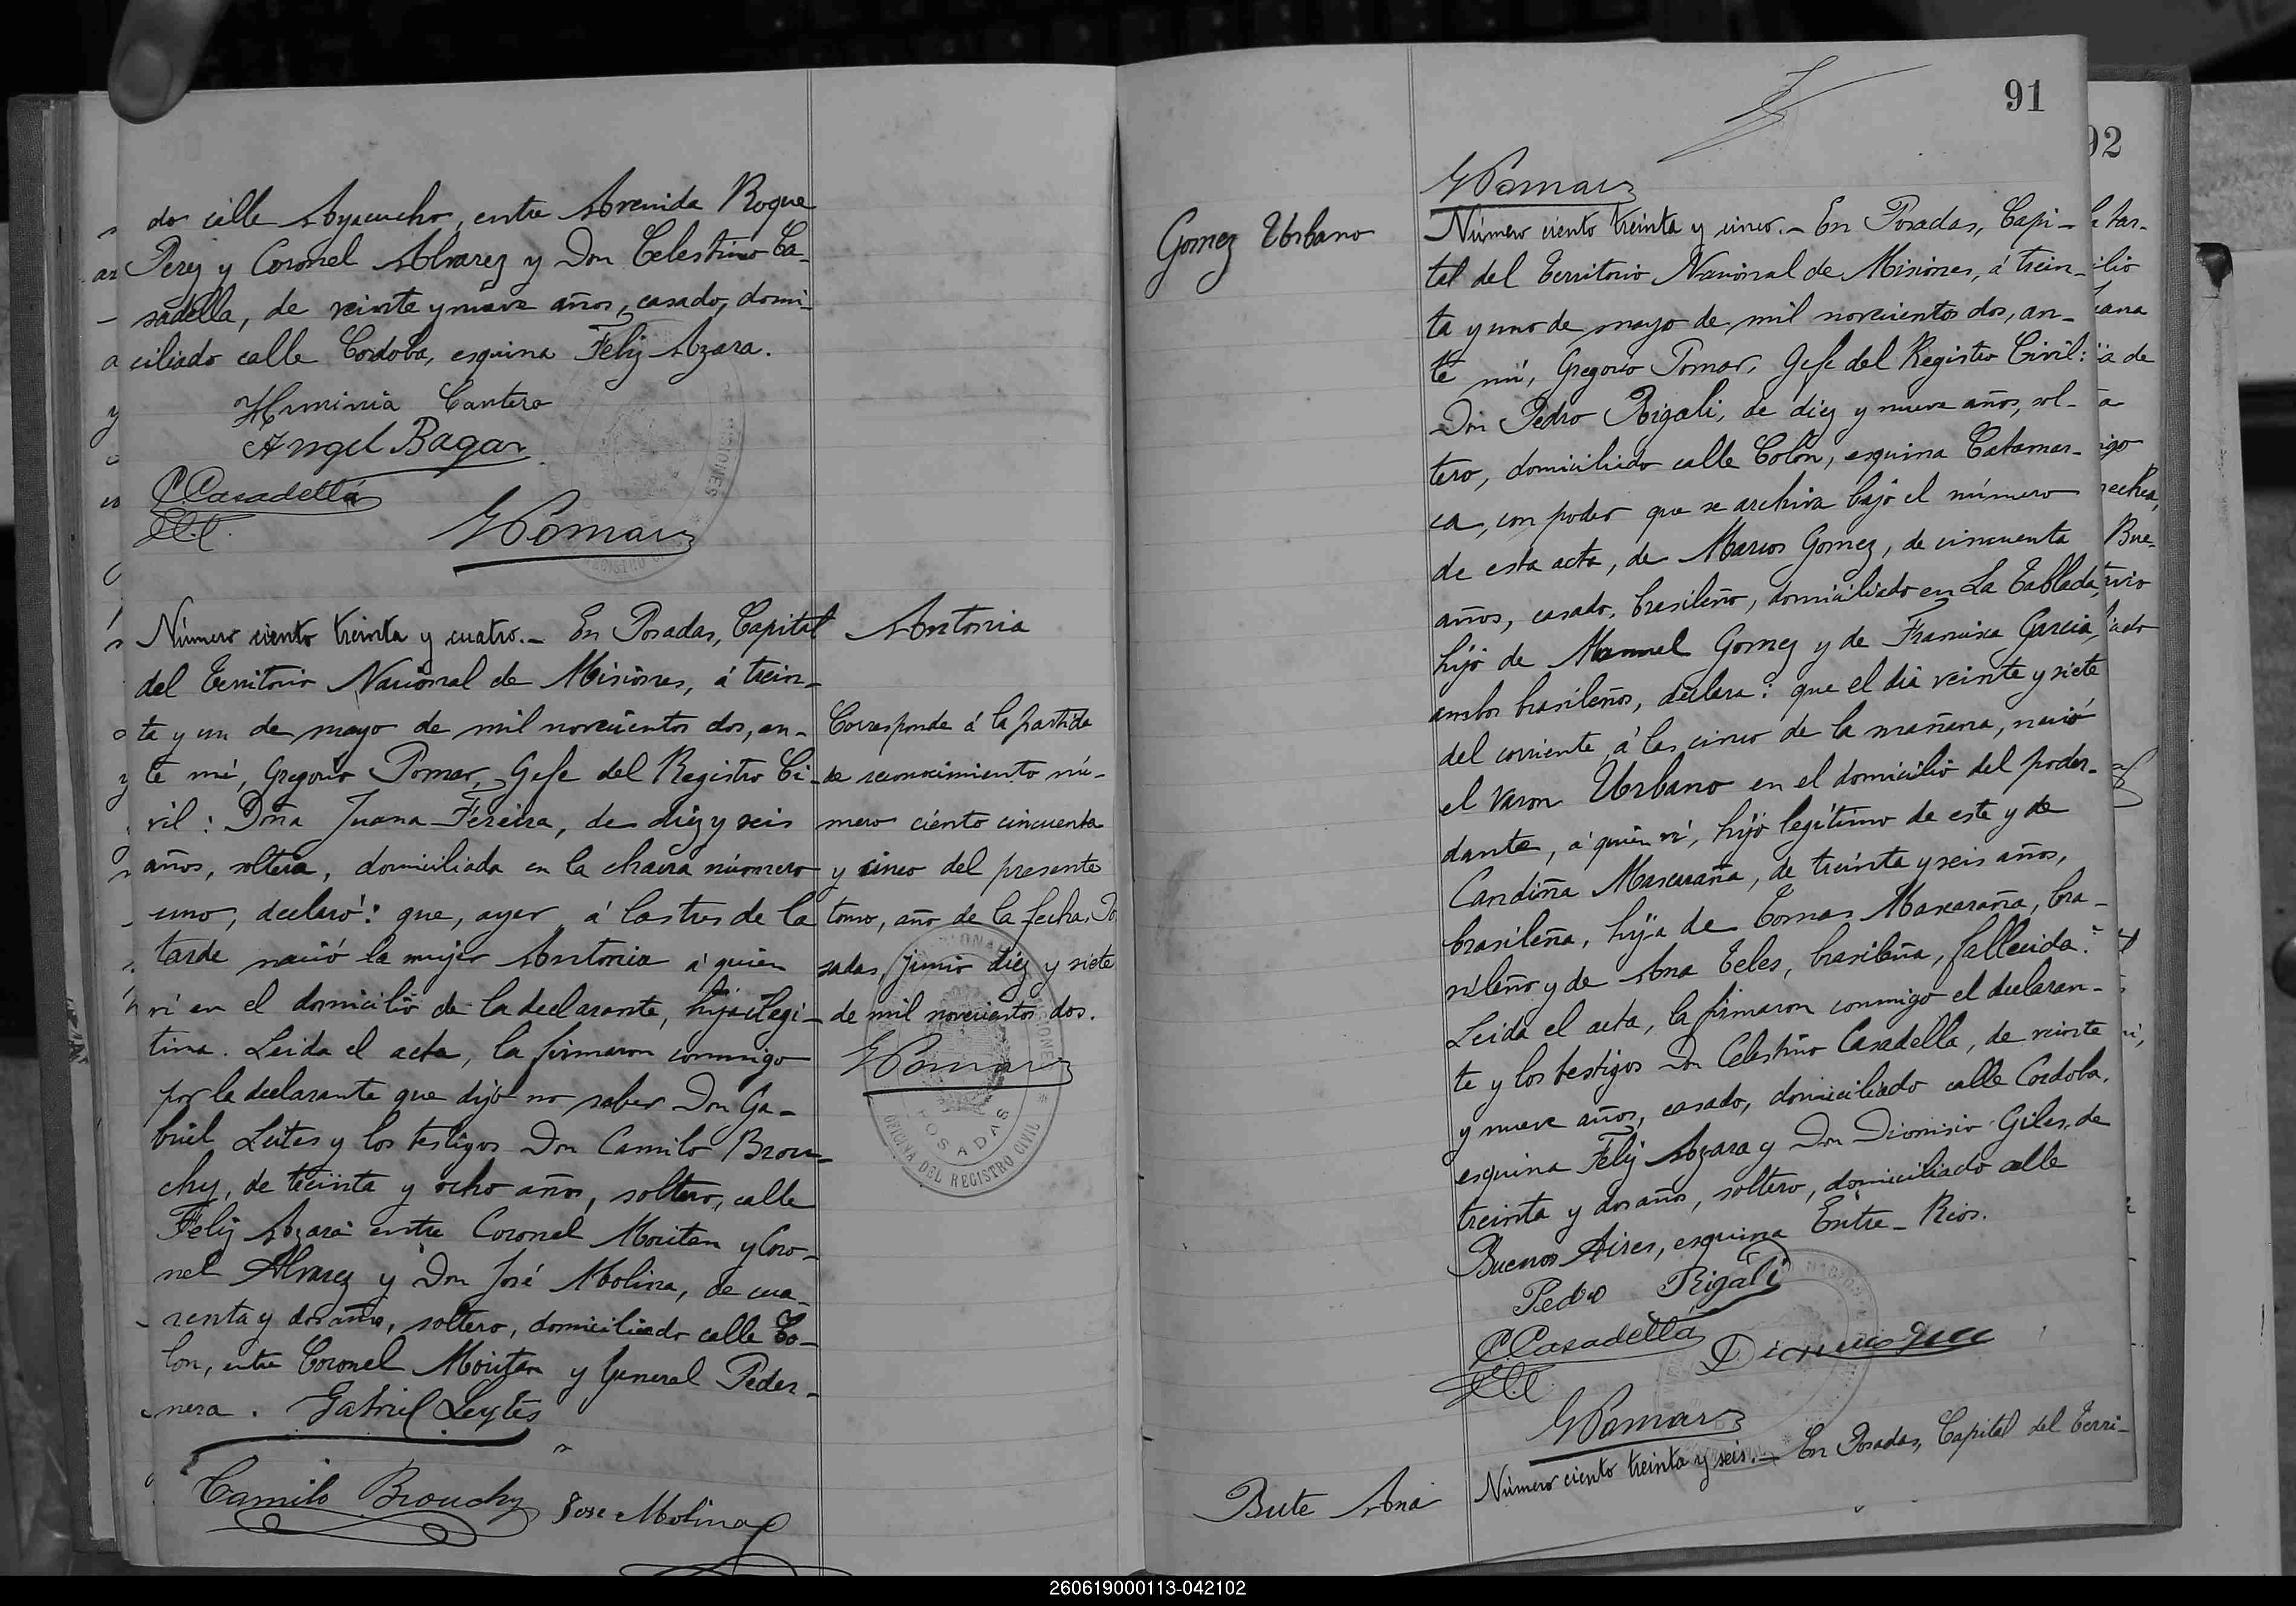 do calle Ayacucho, entre Avenida Roque
Perez y Coronel Alvarez y Don Celestino Ca-
sadella, de veinte y nueve años, casado, domi-
ciliado calle Cordoba, esquina Feliz Azara.
Herminia Cantero
Angel Bagar
C. Casadella
G Pomar
Número ciento treinta y cuatro.- En Posadas, Capital
del Territorio Nacional de Misiones, á trein-
ta y un de mayo de mil novecientos dos, an-
te mí, Gregorio Pomar, Gefe del Registro Ci-
vil: Doña Juana Fereira, de diez y seis
años, soltera, domiciliada en la chacra número
uno, declaró: que, ayer á las tres de la
tarde nació la mujer Antonia á quien
ví en el domicilio de la declarante, hija ilegi-
tima. Leida el acta, la firmaron conmigo
por la declarante que dijo no saber Don Ga-
briel Leites y los testigos Don Camilo Brou-
chy, de treinta y ocho años, soltero, calle
Feliz Azara entre Coronel Moritan y Coro-
nel Alvarez y Don José Molina, de cua-
renta y dos años, soltero, domiciliado calle Co-
lon, entre Coronel Moritan y General Peder-
nera. Gabriel Leytes
Camilo Brouchy Jose Molina
Antonia
Corresponde á la partida
de reconocimiento nú-
mero ciento cincuenta
y cinco del presente
tomo, año de la fecha. Po
sadas, junio diez y siete
de mil novecientos dos.
G Pomar
POSADAS
OFICINA DEL REGISTRO CIVIL
91
92
G Pomar
Gomez Urbano
Número ciento treinta y cinco.- En Posadas, Capi-
tal del Territorio Nacional de Misiones, á trein-
ta y uno de mayo de mil novecientos dos, an-
te mí, Gregorio Pomar, Gefe del Registro Civil:
Don Pedro Rigali, de diez y nueve años, sol-
tero, domiciliado calle Colón, esquina Catamar-
ca, con poder que se archiva bajo el número
de esta acta, de Marcos Gomez, de cincuenta
años, casado, brasileño, domiciliado en La Tablada,
hijo de Manuel Gomez y de Francisca Garcia,
ambos brasileños, declara: que el dia veinte y siete
del corriente á las cinco de la mañana, nació
el varon Urbano en el domicilio del poder-
dante, á quien ví, hijo legítimo de este y de
Candiña Mascaraña, de treinta y seis años,
brasileña, hija de Tomas Mascaraña, bra-
sileño y de Ana Teles, brasileña, fallecida.
Leida el acta, la firmaron conmigo el declaran-
te y los testigos Don Celestino Casadella, de veinte
y nueve años, casado, domiciliado calle Cordoba,
esquina Feliz Azara y Don Dionisio Giles, de
treinta y dos años, soltero, domiciliado calle
Buenos Aires, esquina Entre-Rios.
Pedro Rigali
C. Casadella
G Pomar
Bute Ana
Número ciento treinta y seis.- En Posadas, Capital del Terri-
260619000113-042102